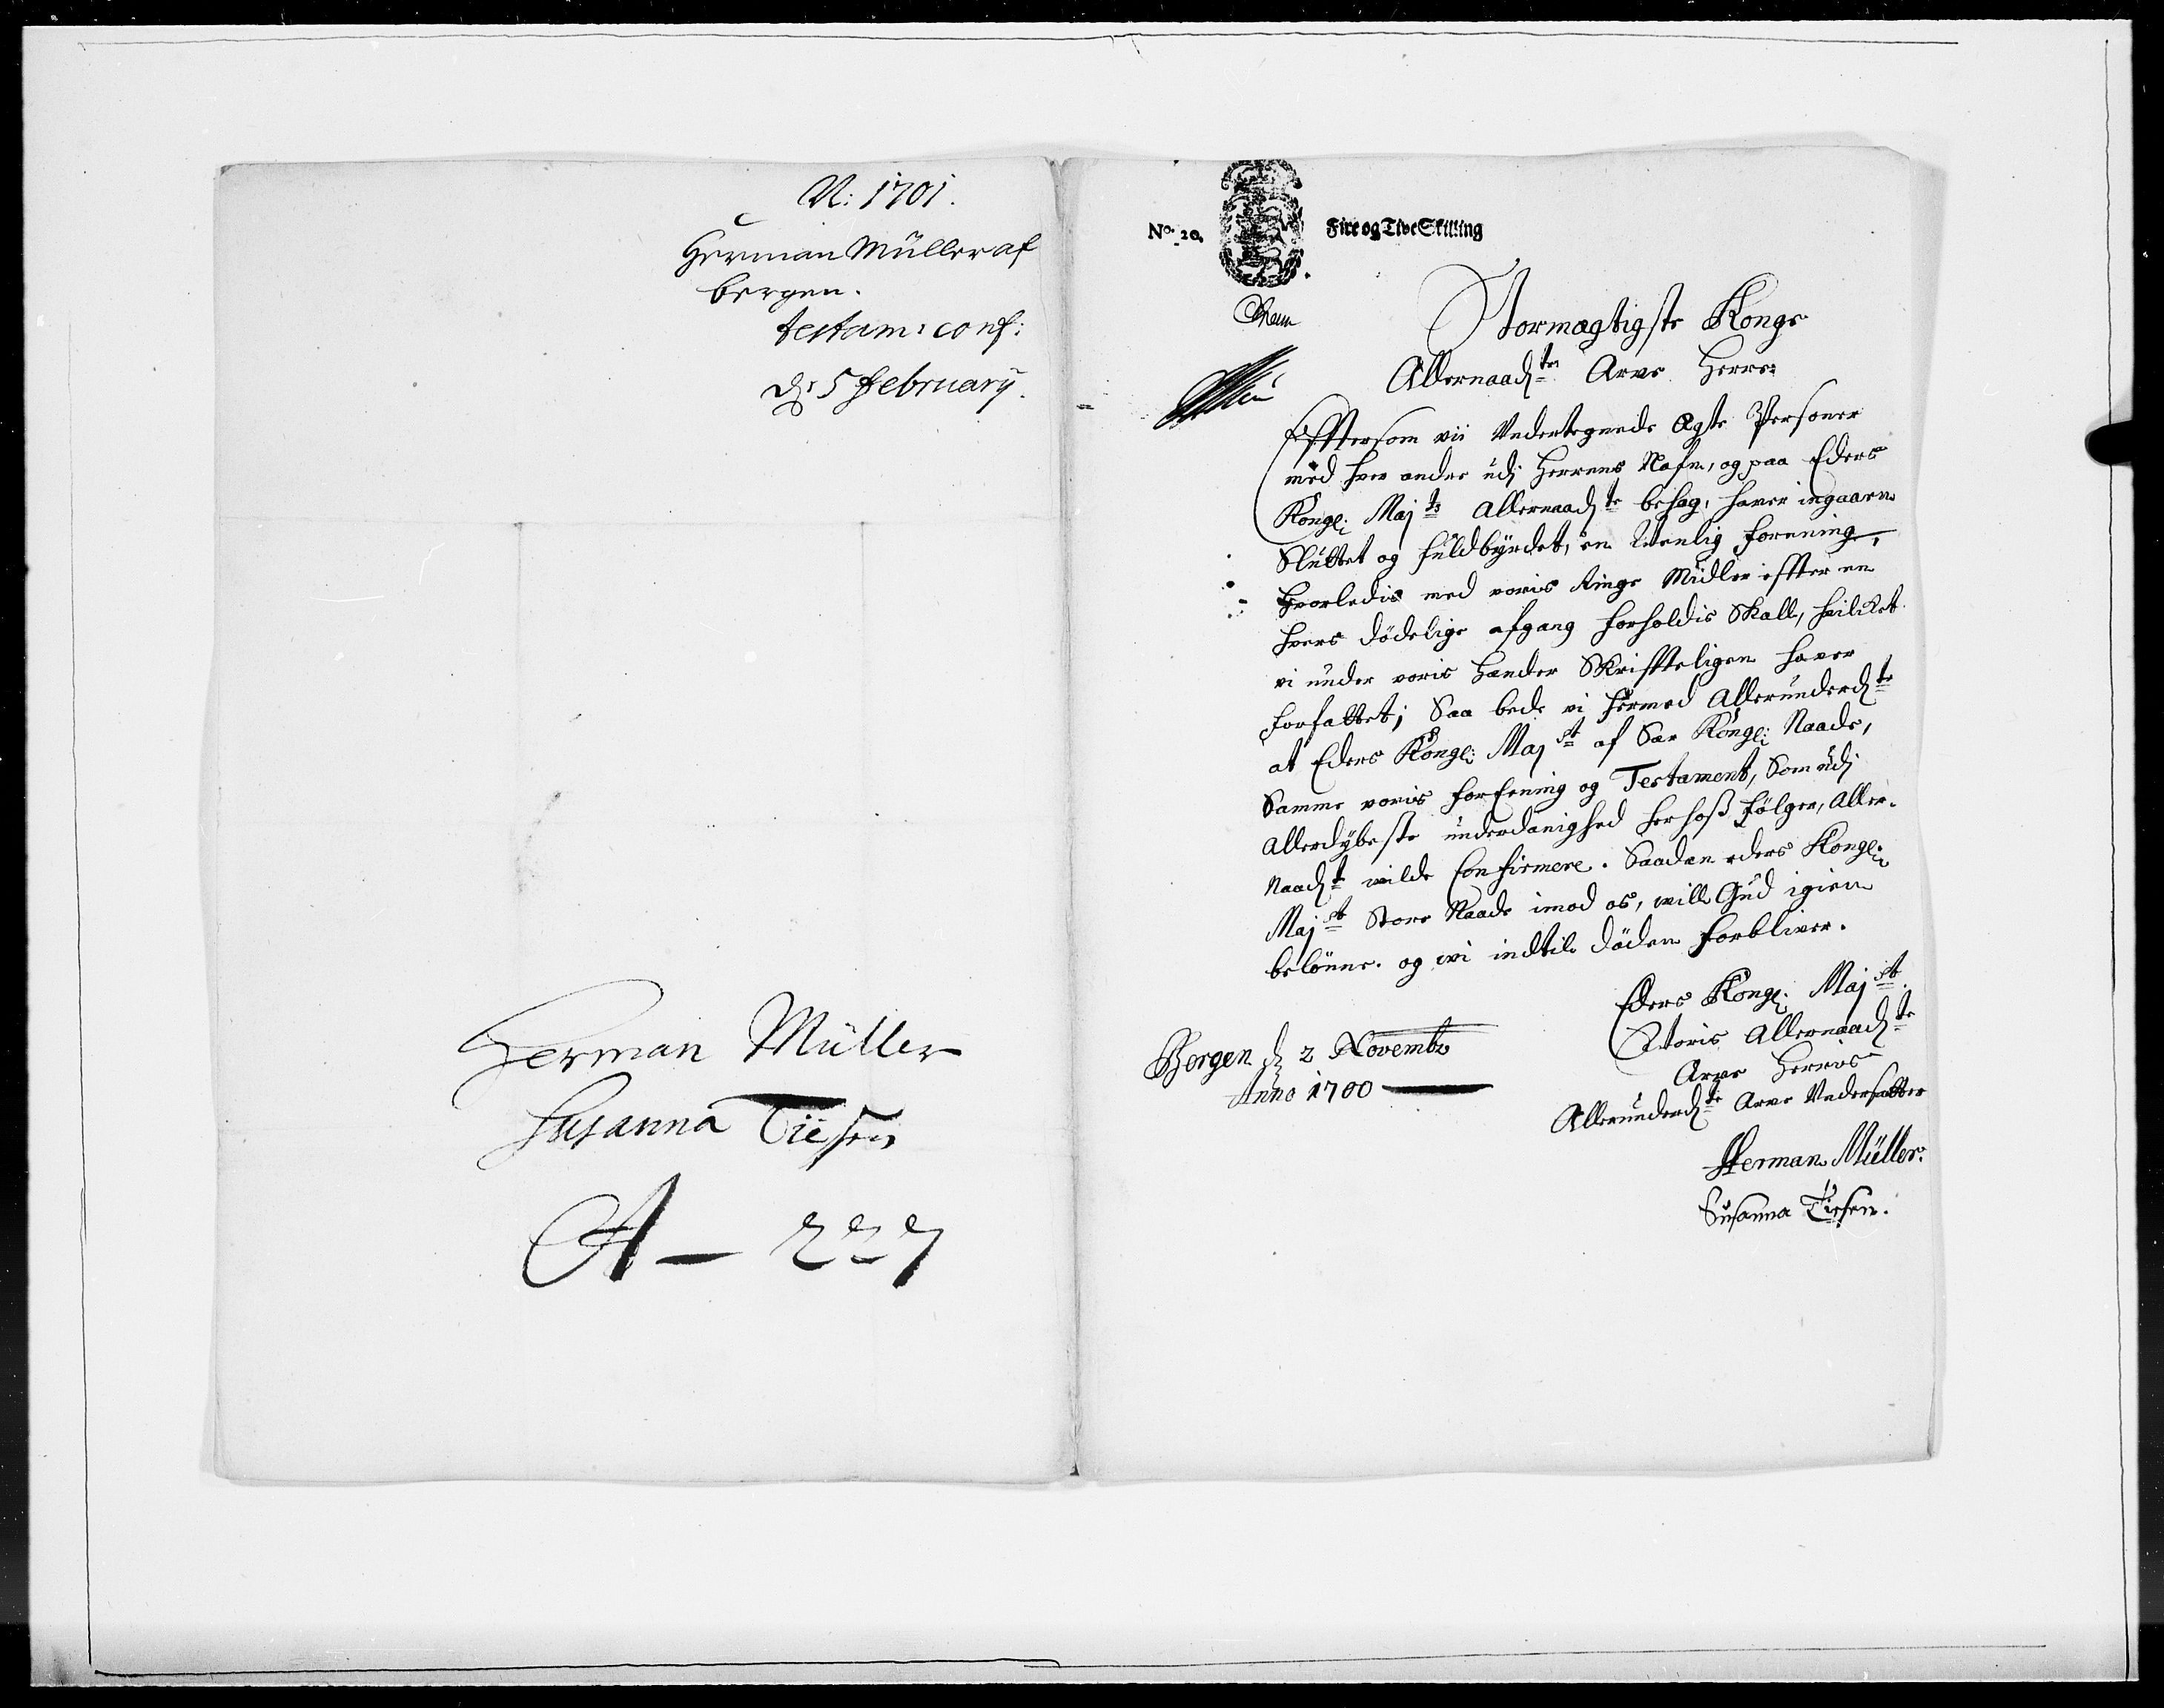 N: 1701.
Herman Müller af
bergen.
testam: conf:
d: 5 february.
Herman Müller
Susanna Tiesen
A — 227
No. 20.
Fire og Tive Skilling
Stormægtigste Konge
Allernaadte Arve Herre
Efftersom vii Undertegnede Ægte Personer
med hver andre udj Herrens Nafn, og paa Eders
Kongl: Majts Allernaadte behag, haver ingaaen
Sluttet og fuldbyrdet, en Venlig forening,
Hvorledis med voris Ringe Midler effter en
hvers dödelige afgang forholdis Skall, hvilcket
vi under voris Hænder Skrifftteligen haver
forfattet; Saa bede vi hermed Allerunderdte
at Eders Kongl: Majst af Sær Kongl: Naade,
Samme voris forEening og Testament, Som udj
Allerdybeste underdanighed her hoß fölger, Aller-
Naadt wilde Confirmere. Saadan eders Kongl:
Majst Store Naade imod os, will Gud igien
belönne. og wi indtil döden forbliver.
Eders Kongl. Majst.
Voris Allernaadte
Arve Herris
Allerunderdte Arve Undersatter
Bergen d. 2 Novembr
Anno 1700
Herman Müller.
Susanna Tiesen.